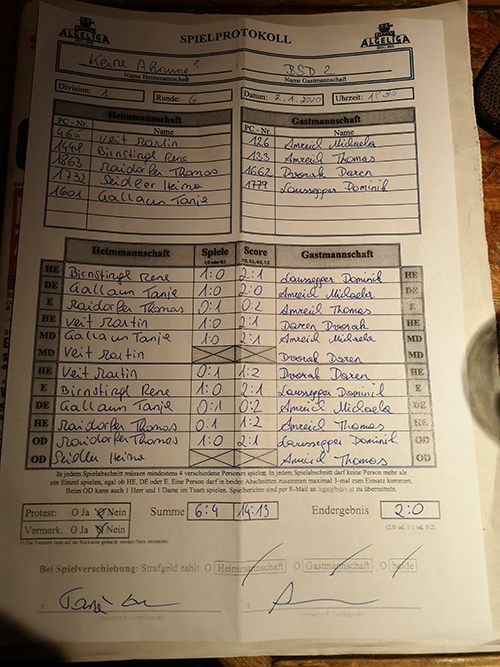 ALGELIGA
SPIELPROTOKOLL
ALGELIGA
Keine Ahnung? BSD 2
Name Heimmannschaft Name Gastmannschaft
Division: 1 Runde: 6 Datum: 2.1.2020 Uhrzeit:
Heimmannschaft Gastmannschaft
PC - Nr. Name PC - Nr. Name
465 Veit Martin 126 Amreil Michaela
1448 Birnstingl Rene 133 Amreil Thomas
1863 Raidorfer Thomas 1662 Dvorak Daren
1732 Seidler Heimo 1779 Laussegger Dominik
1601 Gallaun Tanja
Heimmannschaft Spiele Score Gastmannschaft
HE Birnstingl Rene 1:0 2:1 Laussegger Dominik HE
DE Gallaun Tanja 1:0 2:0 Amreil Michaela DE
E Raidorfer Thomas 0:1 0:2 Amreil Thomas E
HE Veit Martin 1:0 2:1 Daren Dvorak HE
MD Gallaun Tanja 1:0 2:1 Amreil Michaela MD
MD Veit Martin Dvorak Daren MD
HE Veit Martin 0:1 1:2 Dvorak Daren HE
E Birnstingl Rene 1:0 2:1 Laussegger Dominik E
DE Gallaun Tanja 0:1 0:2 Amreil Michaela DE
HE Raidorfer Thomas 0:1 1:2 Amreil Thomas HE
OD Raidorfer Thomas 1:0 2:1 Laussegger Dominik OD
OD Seidler Heimo Amreil Thomas OD
In jedem Spielabschnitt müssen mindestens 4 verschiedene Personen spielen. In jedem Spielabschnitt darf keine Person mehr als
ein Einzel spielen, egal ob HE, DE oder E. Eine Person darf in beiden Abschnitten zusammen maximal 3-mal zum Einsatz kommen.
Beim OD kann auch 1 Herr und 1 Dame im Team spielen. Spielberichte sind per E-Mail an liga@bdv.at zu übermitteln.
Protest: O Ja O Nein Summe 6:4 14:13 Endergebnis 2:0
Vermerk: O Ja O Nein (2:0 od. 1:1 od. 0:2)
Bei Spielverschiebung: Strafgeld zahlt O Heimmannschaft O Gastmannschaft O beide